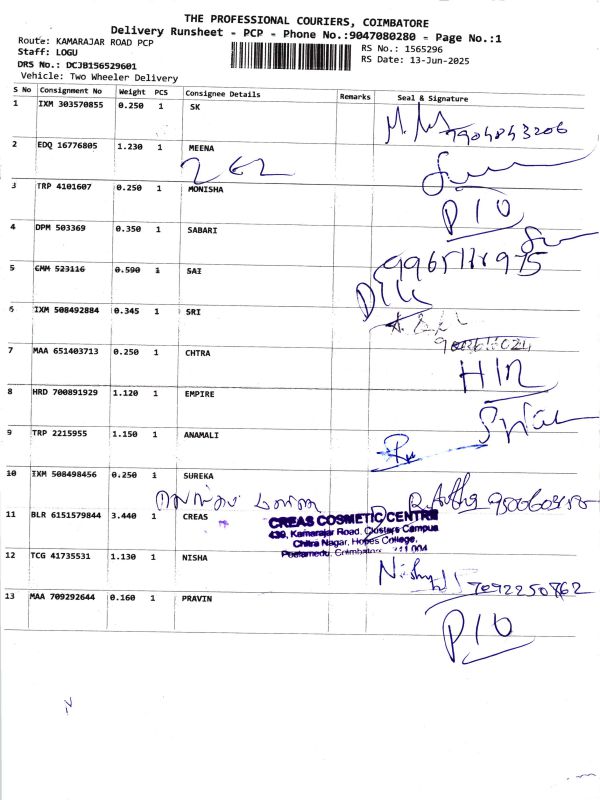 THE PROFESSIONAL COURIERS, COIMBATORE
Delivery Runsheet - PCP - Phone No.:9047080280 - Page No.:1
Route: KAMARAJAR ROAD PCP
Staff: LOGU
DRS No.: DCJB156529601
Vehicle: Two Wheeler Delivery
RS No.: 1565296
RS Date: 13-Jun-2025
S No Consignment No Weight PCS Consignee Details Remarks Seal & Signature
1 IXM 303570855 0.250 1 SK
2 EDQ 16776805 1.230 1 MEENA
262
3 TRP 4101607 0.250 1 MONISHA
P10
4 DPM 503369 0.350 1 SABARI
5 CMM 523116 0.590 1 SAI
6 IXM 508492884 0.345 1 SRI
7 MAA 651403713 0.250 1 CHTRA
8 HRD 700891929 1.120 1 EMPIRE
9 TRP 2215955 1.150 1 ANAMALI
10 IXM 508498456 0.250 1 SUREKA
11 BLR 6151579844 3.440 1 CREAS
CREAS COSMETIC CENTRE
439, Kamarajar Road, Clusters Campus
Chitra Nagar, Hopes College,
Peelamedu, Coimbatore 
12 TCG 41735531 1.130 1 NISHA
7092250762
13 MAA 709292644 0.160 1 PRAVIN
P10